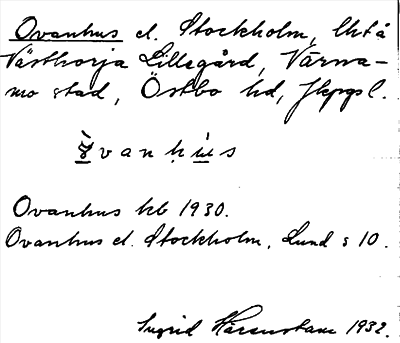 Ovanhus el. Stockholm, lht å
Västhorja Lillegård, Värna-
mo stad, Östbo hd, Jkpgs l.
vanḥu̠s
Ovanhus kb 1930.
Ovanhus el. Stockholm, Lund s 10.
Ingrid Härenstam 1932.